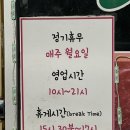 정기휴무
매주 월요일
영업시간
10시~21시
휴게시간(break Time)
15시30분~17시